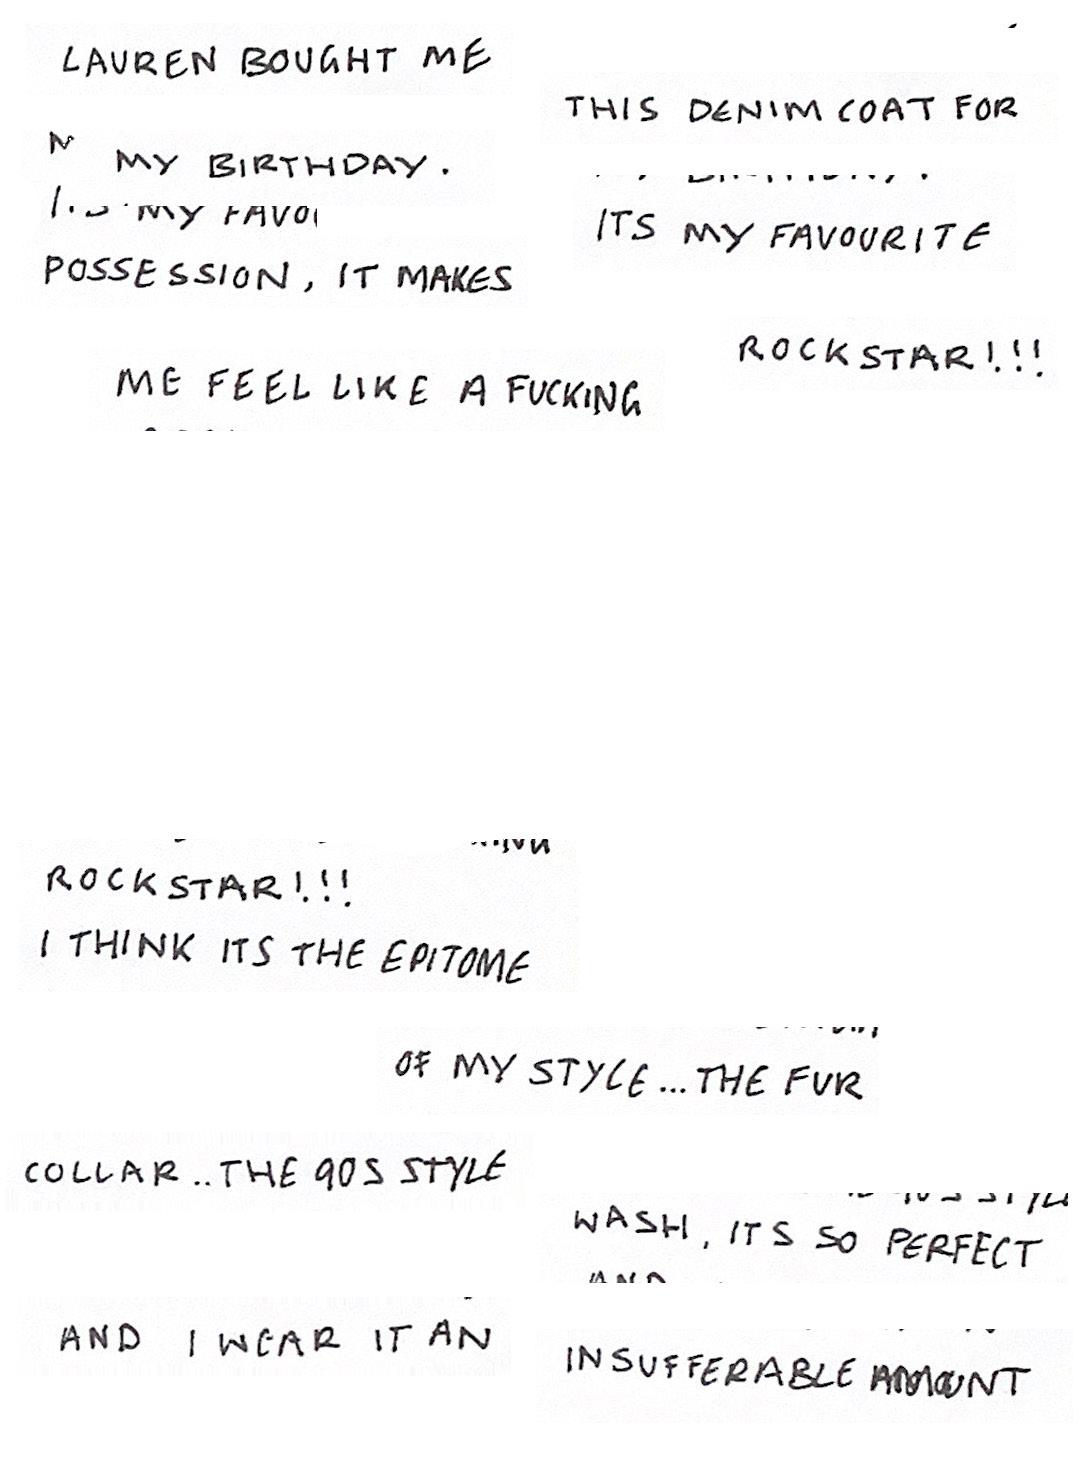 LAUREN BOUGHT ME
THIS DENIM COAT FOR
MY BIRTHDAY.
ITS MY FAVOURITE
POSSESSION, IT MAKES
ME FEEL LIKE A FUCKING
ROCKSTAR!!!
ROCKSTAR!!!
I THINK ITS THE EPITOME
OF MY STYLE...THE FUR
COLLAR..THE 90S STYLE
WASH, ITS SO PERFECT
AND I WEAR IT AN
INSUFFERABLE AMOUNT